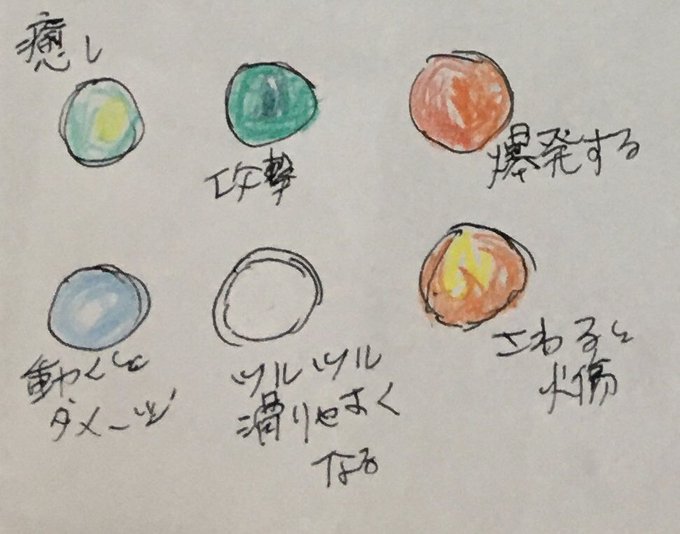 癒し
攻撃
爆発する
動くと
ダメージ
ツルツル
滑りやすく
なる
さわると
火傷